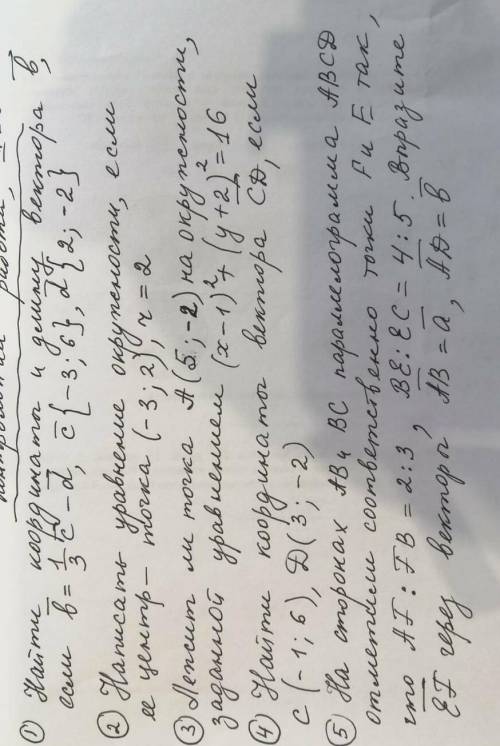 контрольная работа,
① Найти координаты и длину вектора b̅,
если b̅ = 1/3 c̅ − d̅, c̅{−3; 6}, d̅{2; −2}
② Написать уравнение окружности, если
ее центр – точка (−3; 2), r = 2
③ Лежит ли точка A(5; −2) на окружности,
заданной уравнением (x−1)² + (y+2)² = 16
④ Найти координаты вектора CD, если
C(−1; 6), D(3; −2)
⑤ На сторонах AB и BC параллелограмма ABCD
отметили соответственно точки F и E так,
что AF : FB = 2:3, BE : EC = 4:5. Выразите
EF через векторы, AB = a̅, AD = b̅